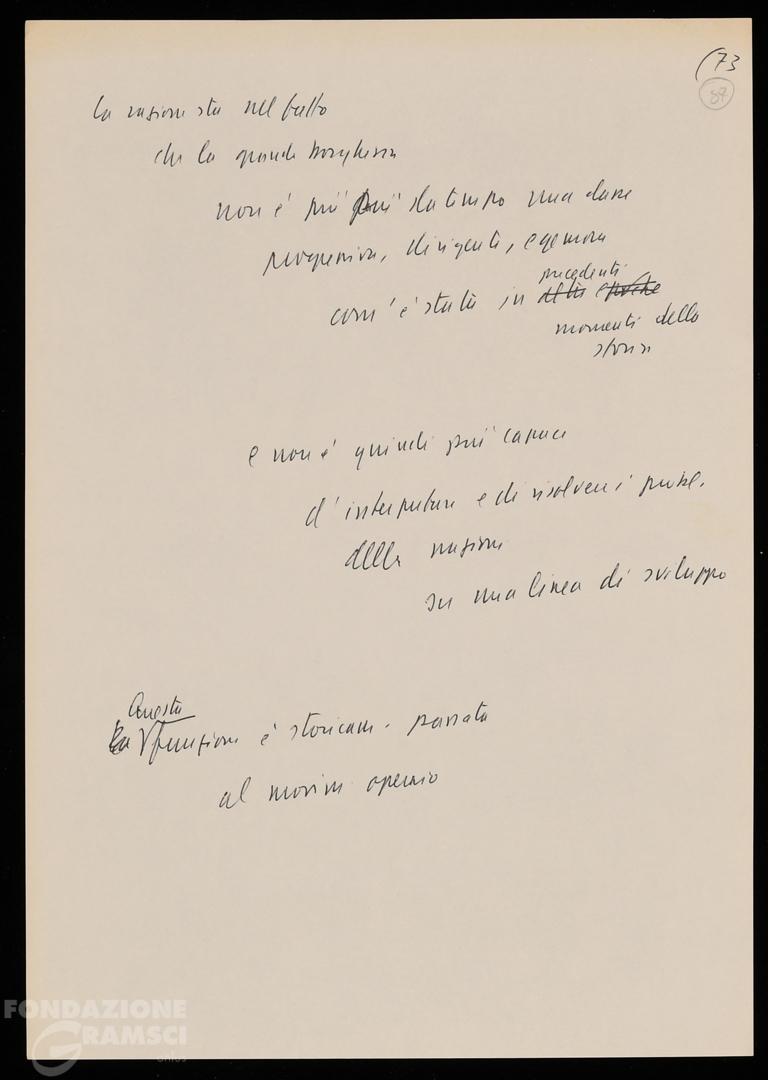 (73
87
La ragione sta nel fatto
che la grande borghesia
non è più più da tempo una classe
progressiva, dirigente, egemone
com'è stata in altre epoche
precedenti
momenti della
storia
e non è quindi più capace
d'interpretare e di risolvere i probl.
della nazione
su una linea di sviluppo
Questa
La funzione è storicam. passata
al movim operaio
FONDAZIONE
GRAMSCI
onlus